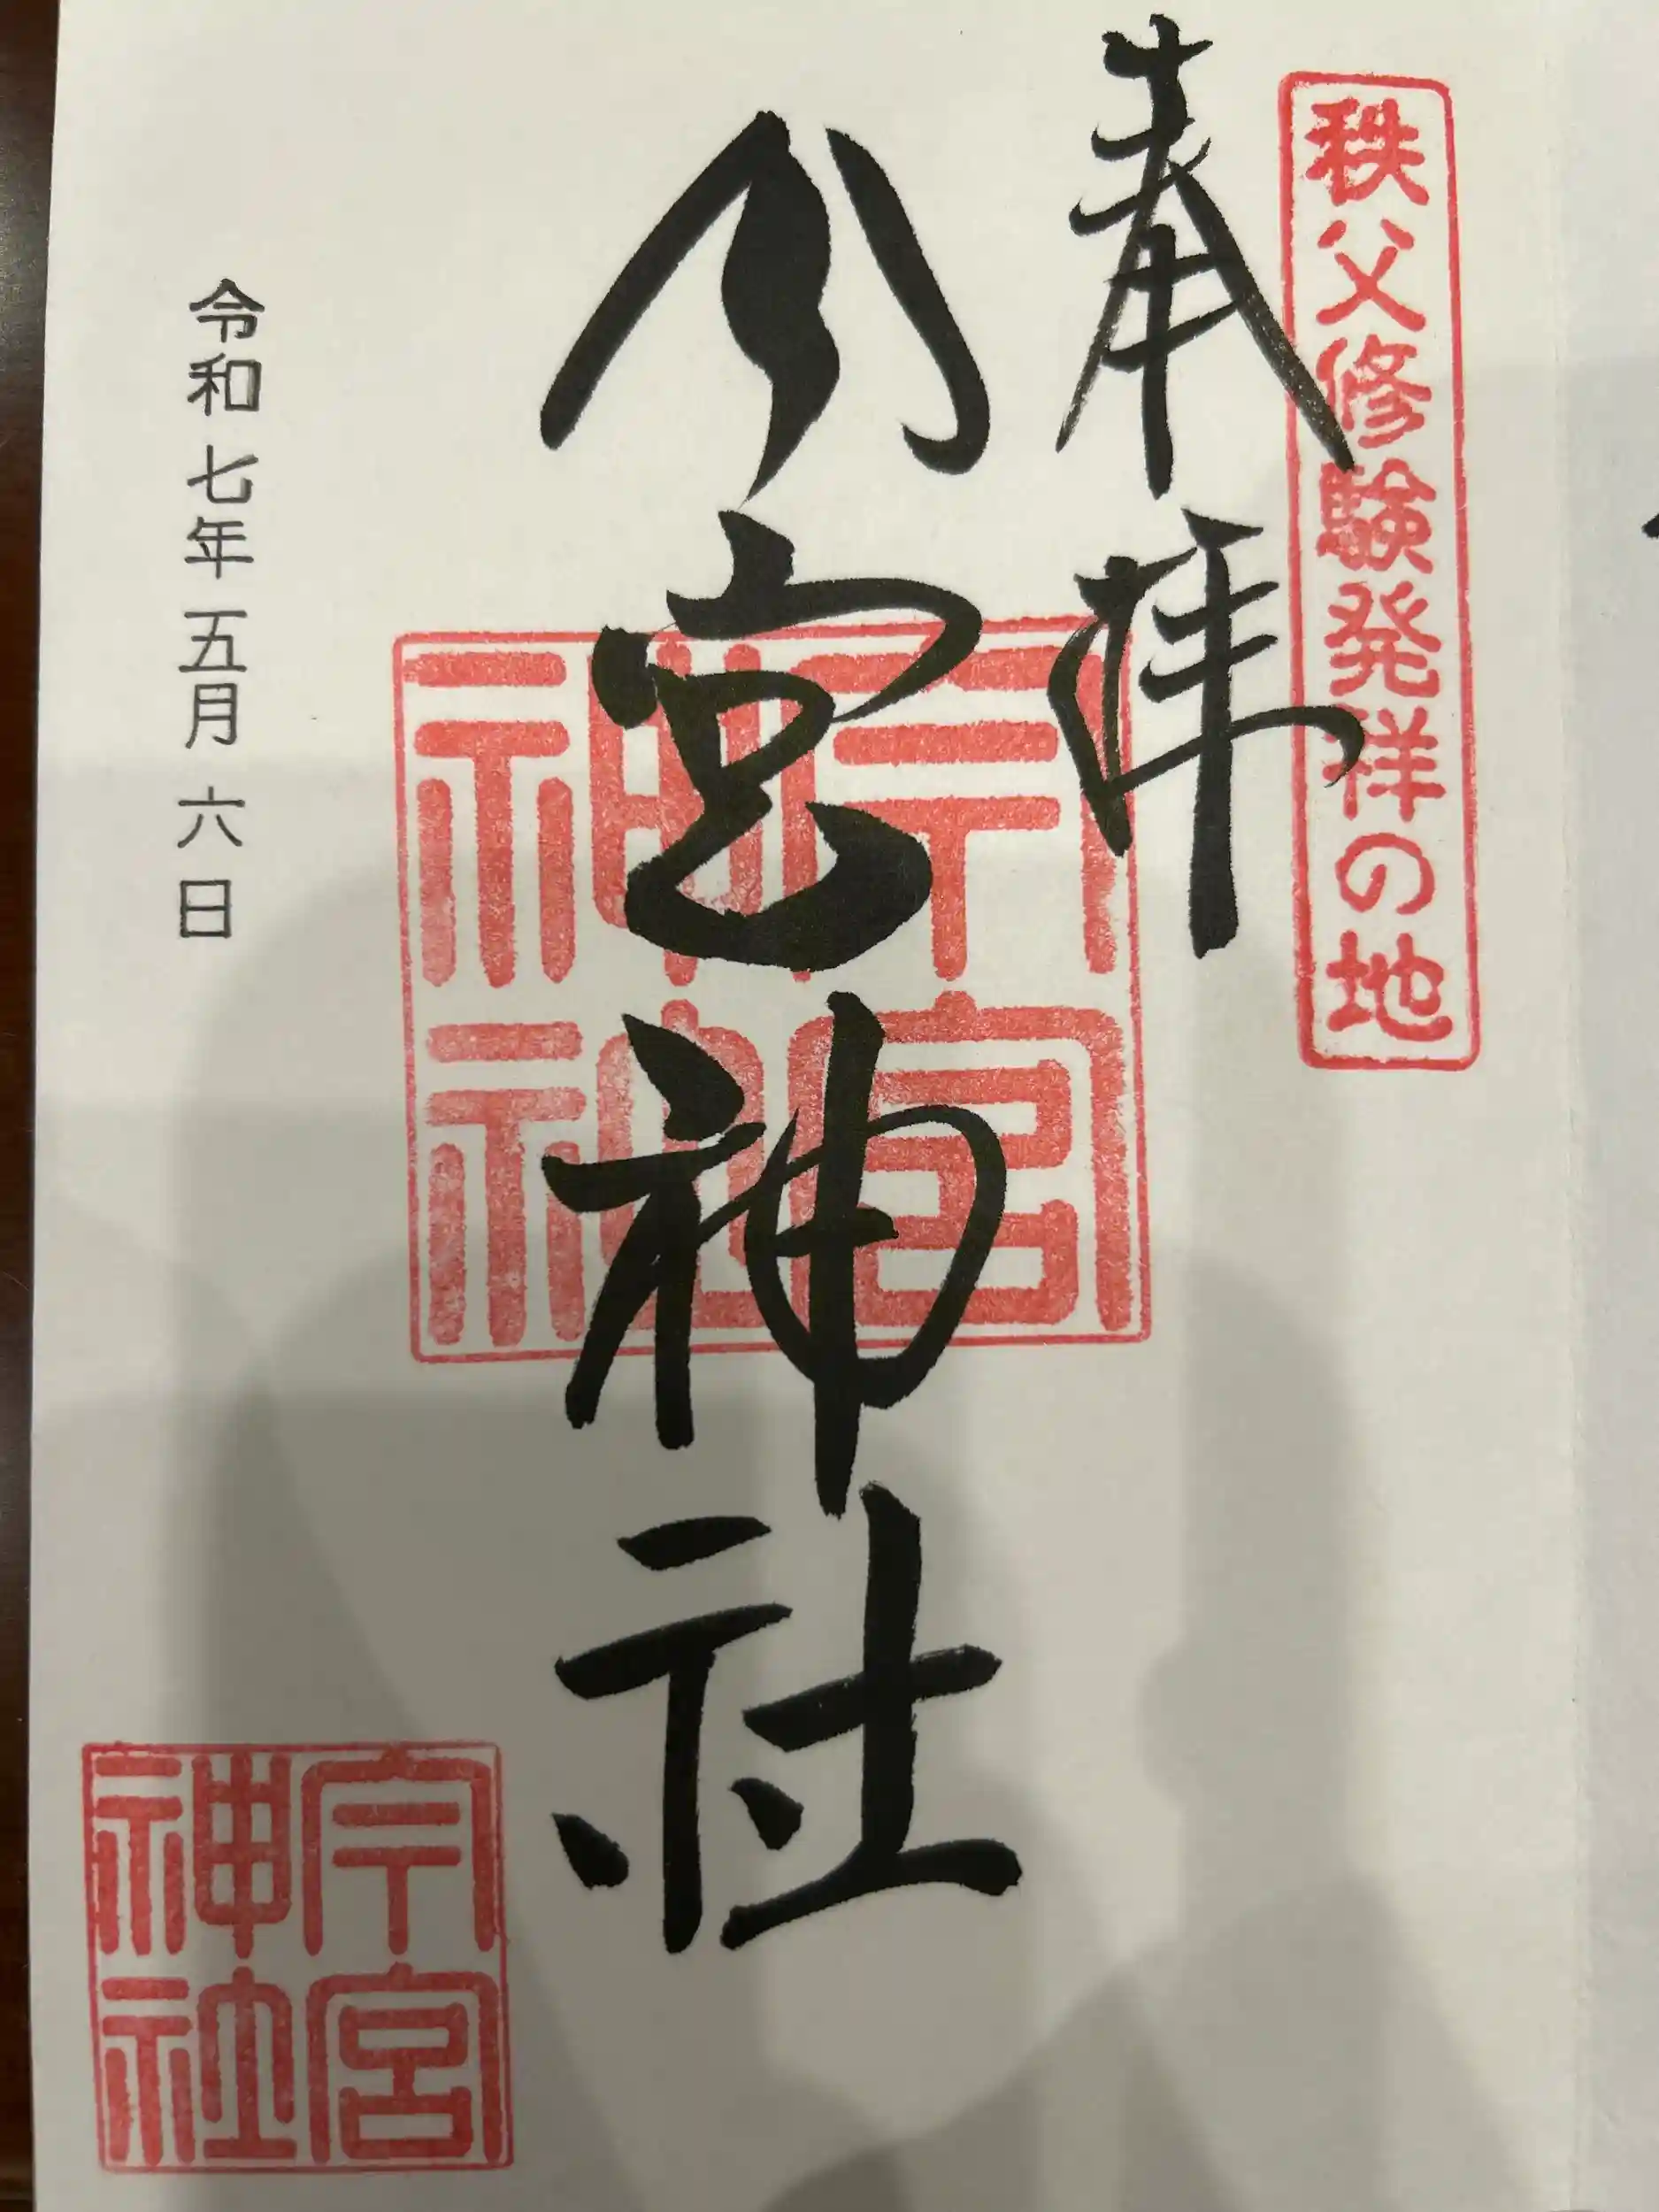 秩父修験発祥の地
奉拝
宇宮神社
宇宮
神社
令和七年五月六日
宇宮
神社